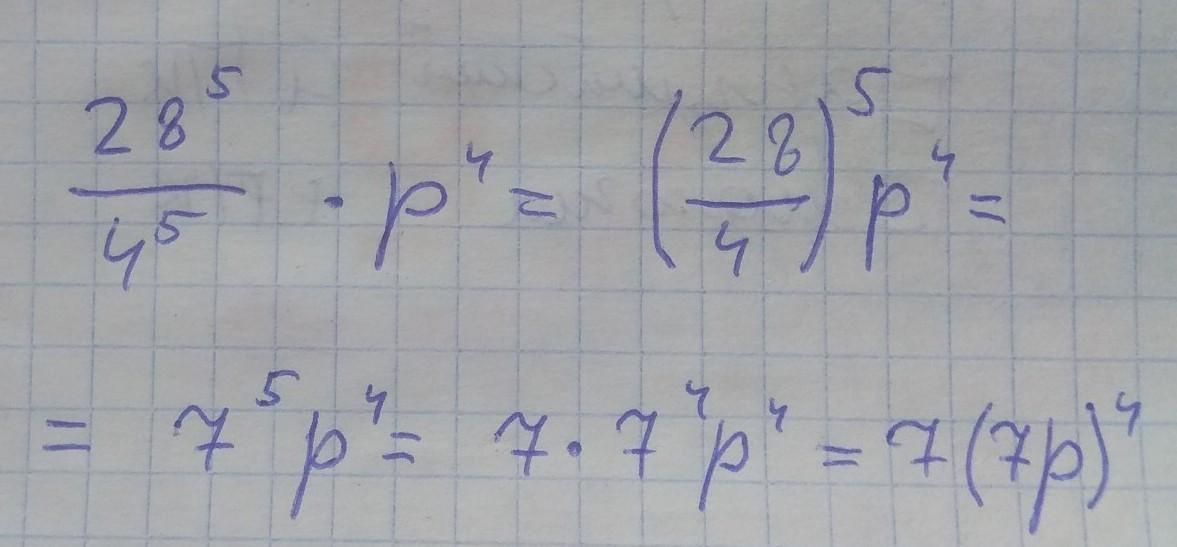 \frac{28^5}{4^5} \cdot p^4 = \left(\frac{28}{4}\right)^5 p^4 =
= 7^5 p^4 = 7 \cdot 7^4 p^4 = 7(7p)^4